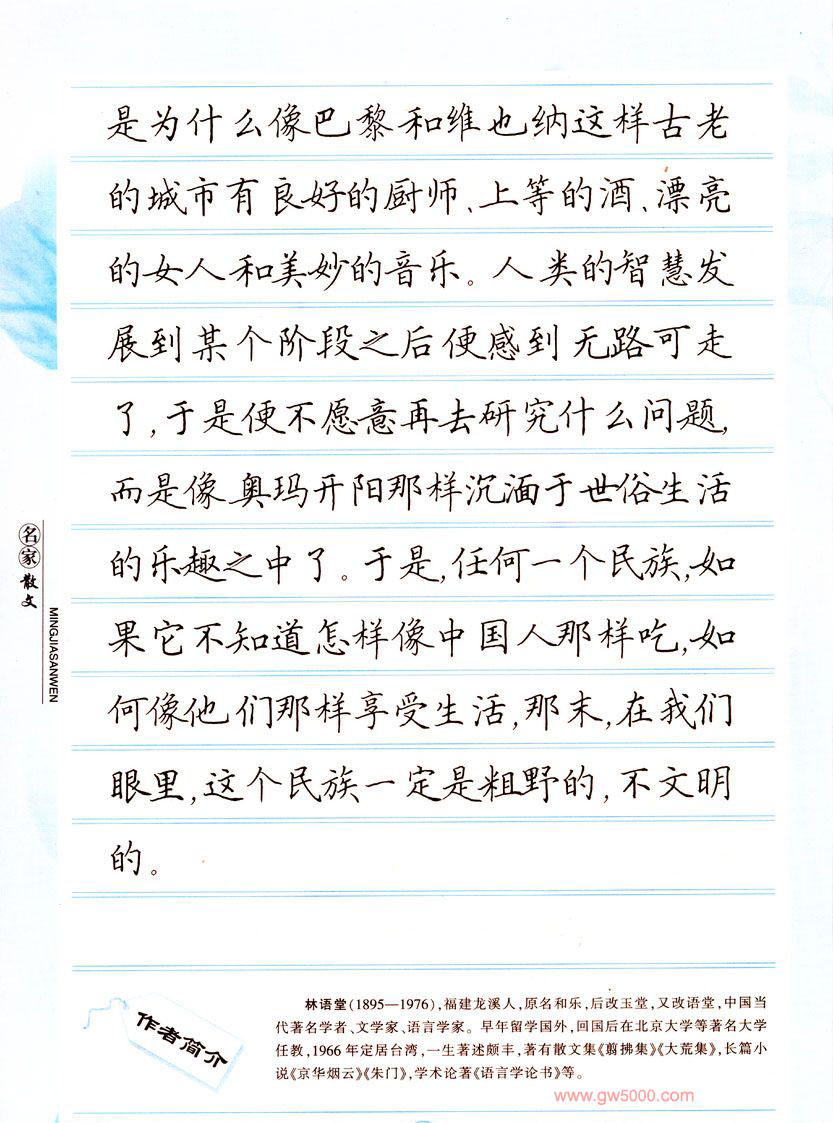 是为什么像巴黎和维也纳这样古老
的城市有良好的厨师、上等的酒、漂亮
的女人和美妙的音乐。人类的智慧发
展到某个阶段之后便感到无路可走
了,于是便不愿意再去研究什么问题,
而是像奥玛开阳那样沉湎于世俗生活
的乐趣之中了。于是,任何一个民族,如
果它不知道怎样像中国人那样吃,如
何像他们那样享受生活,那末,在我们
眼里,这个民族一定是粗野的,不文明
的。
名家散文
MINGJIASANWEN
作者简介
林语堂(1895—1976),福建龙溪人,原名和乐,后改玉堂,又改语堂,中国当
代著名学者、文学家、语言学家。早年留学国外,回国后在北京大学等著名大学
任教,1966年定居台湾,一生著述颇丰,著有散文集《翦拂集》《大荒集》,长篇小
说《京华烟云》《朱门》,学术论著《语言学论书》等。
www.gw5000.com